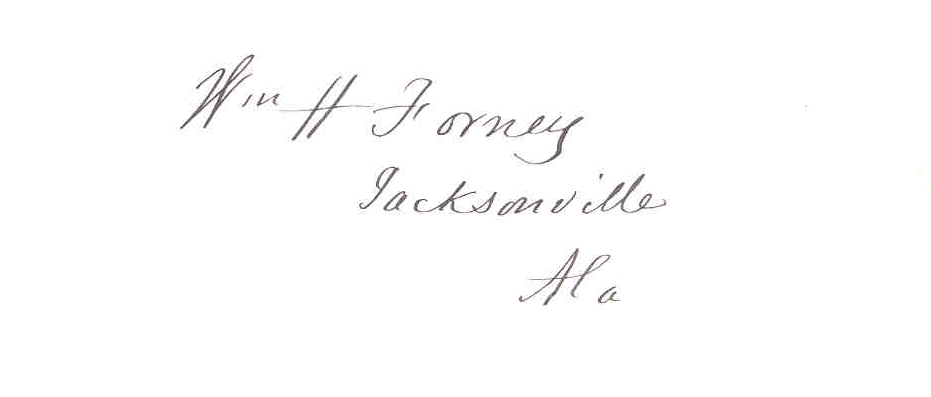 Wm H Forney
Jacksonville
Ala